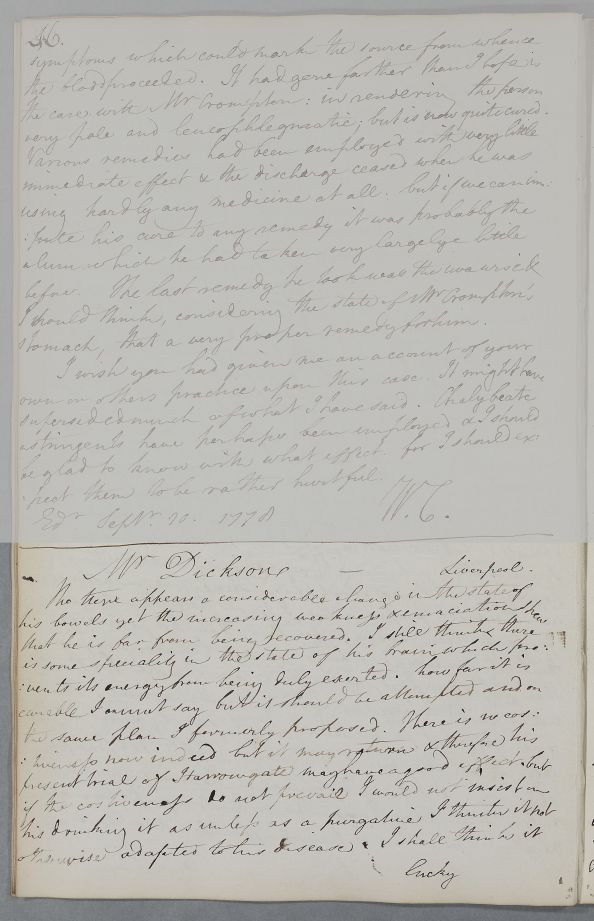 46.
symptoms which could mark the source from whence
the blood proceeded. It had gone farther than I hope is
the case with Mr Crompton: in rendering the person
very pale and leucophlegmatic; but is now quite cured.
Various remedies had been employed with very little
immediate effect & the discharge ceased when he was
using hardly any medicine at all. but if we can im:
:pute his cure to any remedy it was probably the
alum which he had taken very largely a little
before. The last remedy he took was the uva ursi &
I should think, considering the state of Mr Crompton's
stomach, that a very proper remedy for him.
I wish you had given me an account of your
own or others practice upon this case. It might have
superseded much of what I have said. Chalybeate
astringents have perhaps been employed & I should
be glad to know with what effect. for I should ex:
:pect them to be rather hurtful.
Edr. Septr. 10. 1778 W.C.
Mr Dickson — Liverpool.
Tho there appears a considerable change in the state of
his bowels yet the increasing weakness & emaciation shew
that he is far from being recovered. I still think there
is some speciality in the state of his brain which pre:
:vents its energy from being duly exerted. how far it is
curable I cannot say but it should be attempted and on
the same plan I formerly proposed. There is no cos:
:tiveness now indeed but it may return & therefore his
present trial of Harrowgate may have a good effect. but
if the costiveness do not prevail I would not insist on
his drinking it as unless as a purgative I think it not
otherwise adapted to his disease. I shall think it
lucky